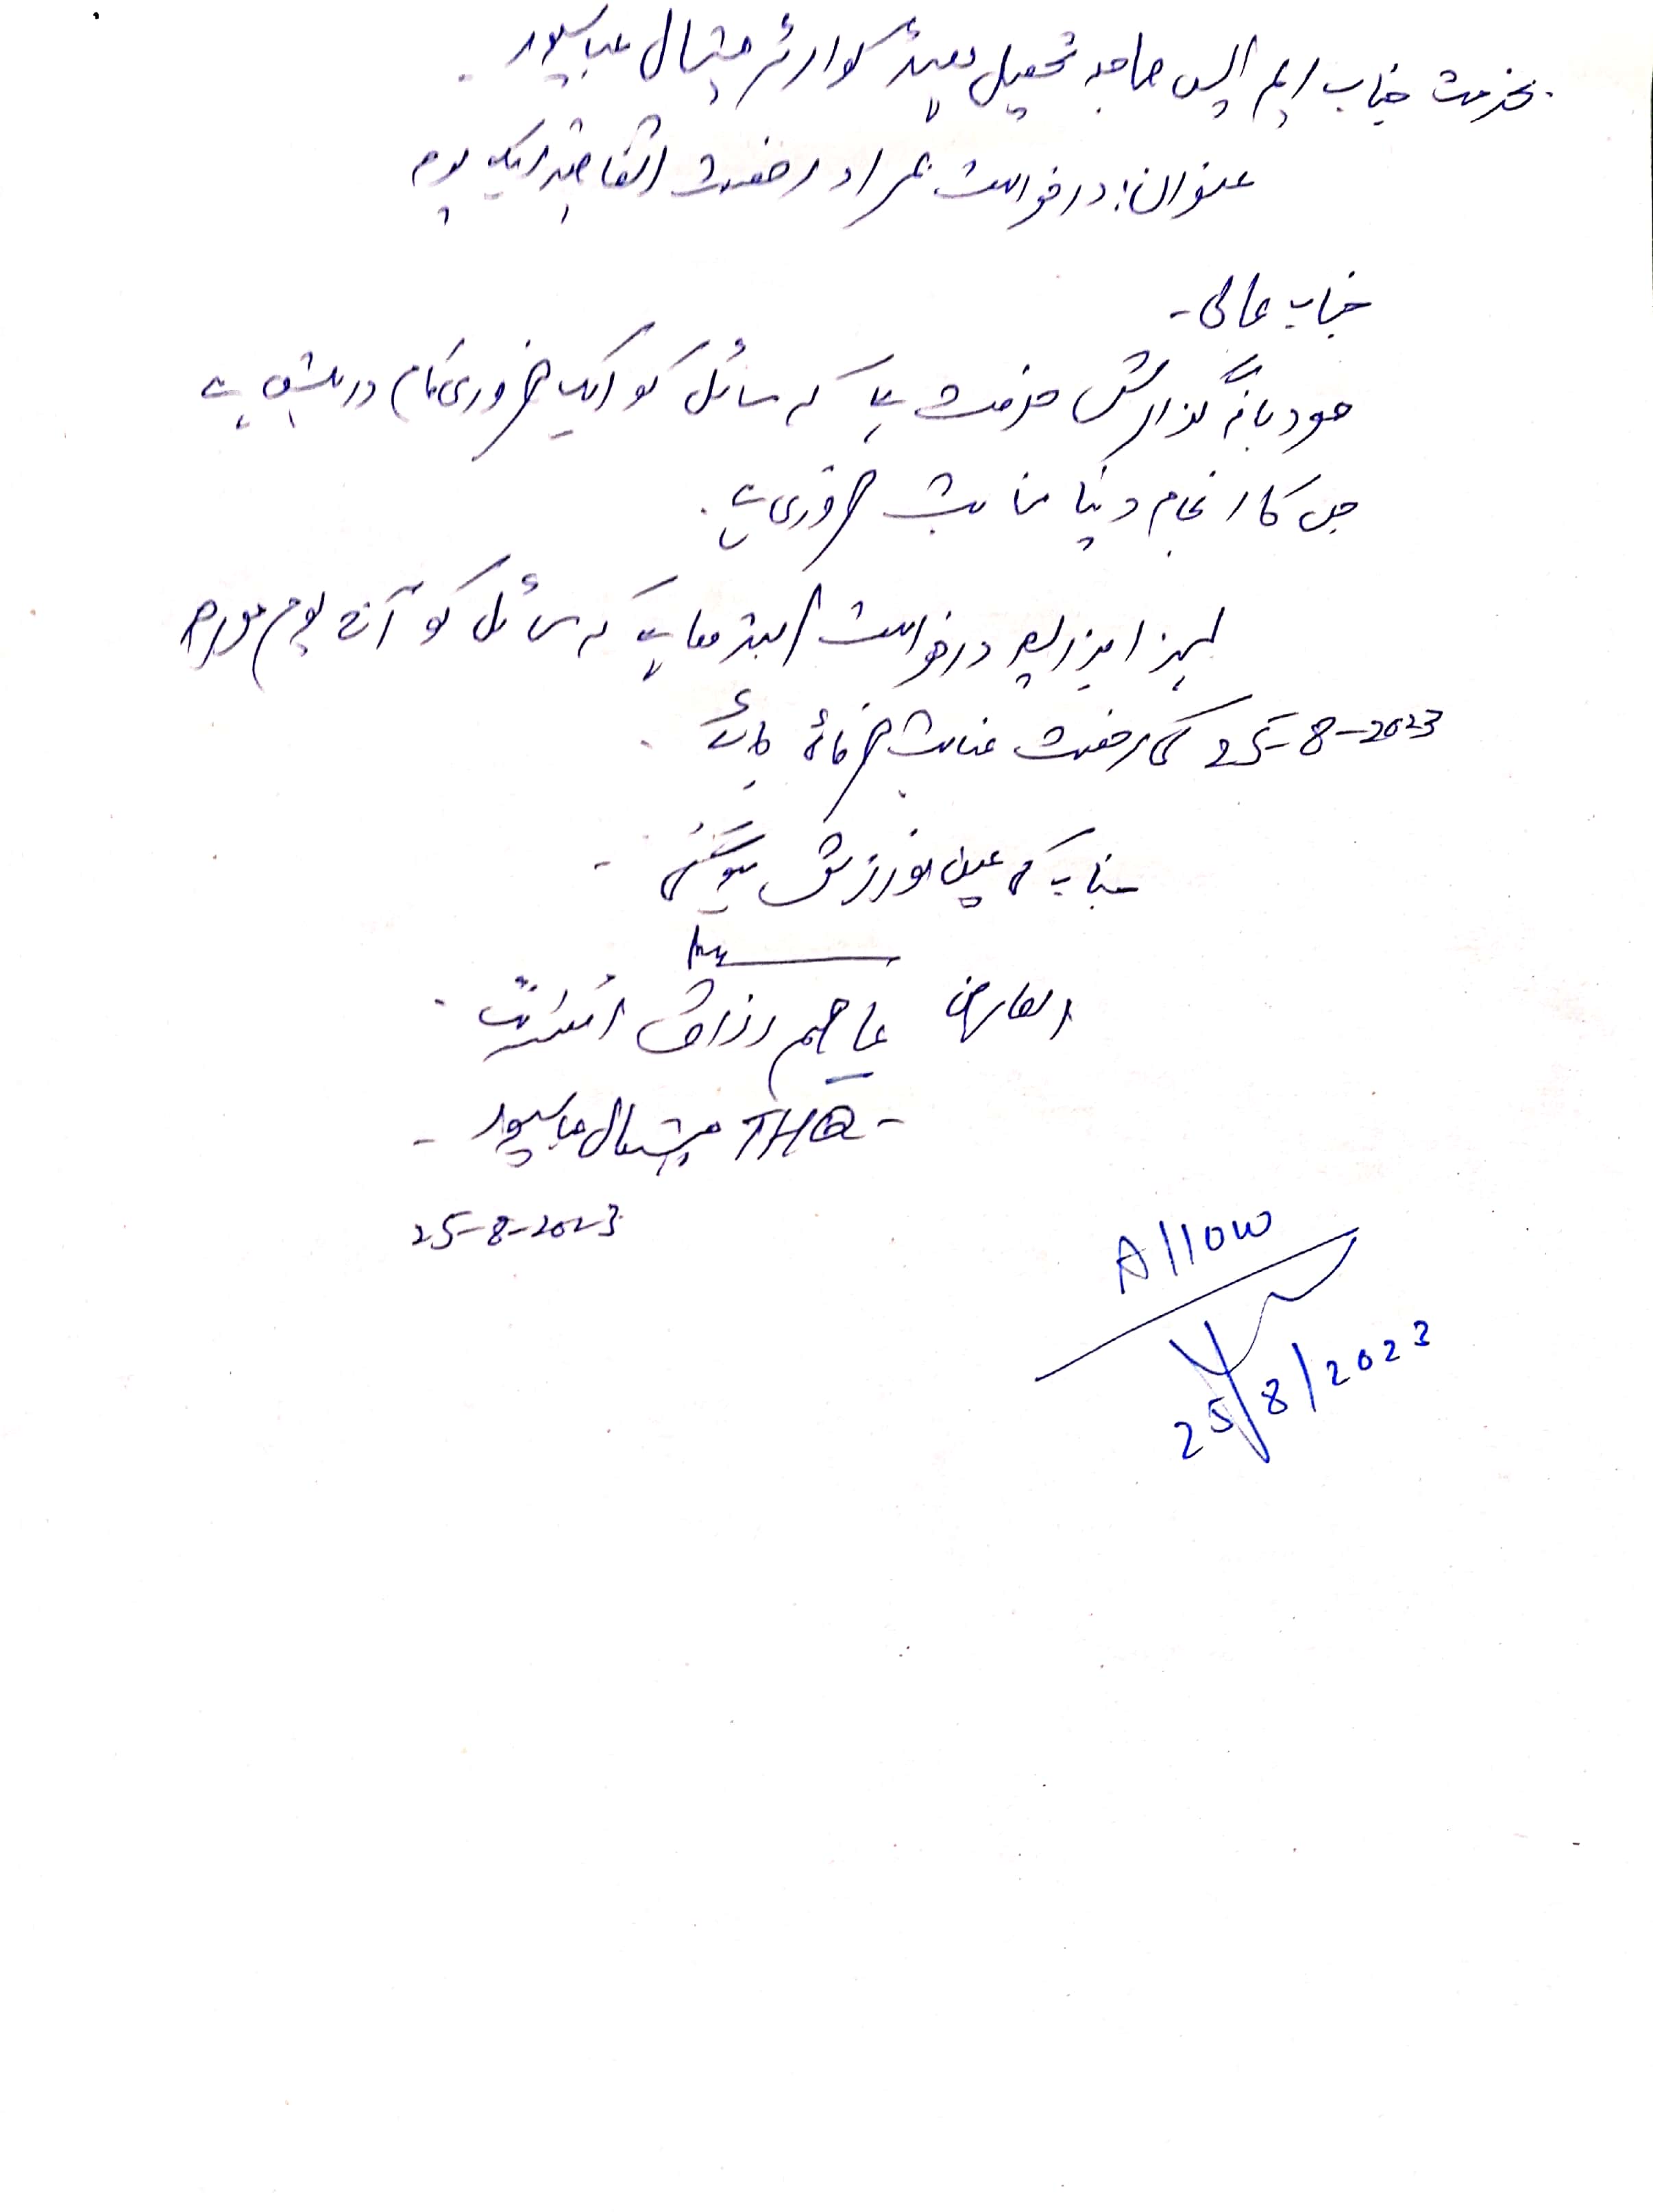 بخدمت جناب ایم ایس صاحب تحصیل ہیڈ کوارٹر ہسپتال عباسپور۔
عنوان: درخواست بمراد رخصت اتفاقیہ ایک یوم
جناب عالی۔
مودبانہ گذارش خدمت ہے کہ سائل کو ایک ضروری کام درپیش ہے
جس کا انجام دینا نہایت ضروری ہے۔
لہذا بذریعہ درخواست استدعا ہے کہ سائل کو آج یوم مورخہ
25-8-2023 کی رخصت عنایت فرمائی جائے۔
جناب کی عین نوازش ہوگی۔
العارض عاصم رزاق
THQ ہسپتال عباسپور۔
25-8-2023
Allow
25/8/2023